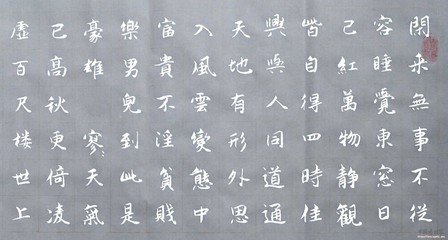 閑来無事不從
容睡覺東窗日
己紅萬物静觀
皆自得四時佳
興與人同道通
天地有形外思
入風雲變態中
富貴不淫貧賤
樂男兒到此是
豪雄寥天氣
已高秋更倚凌
虛百尺楼世上